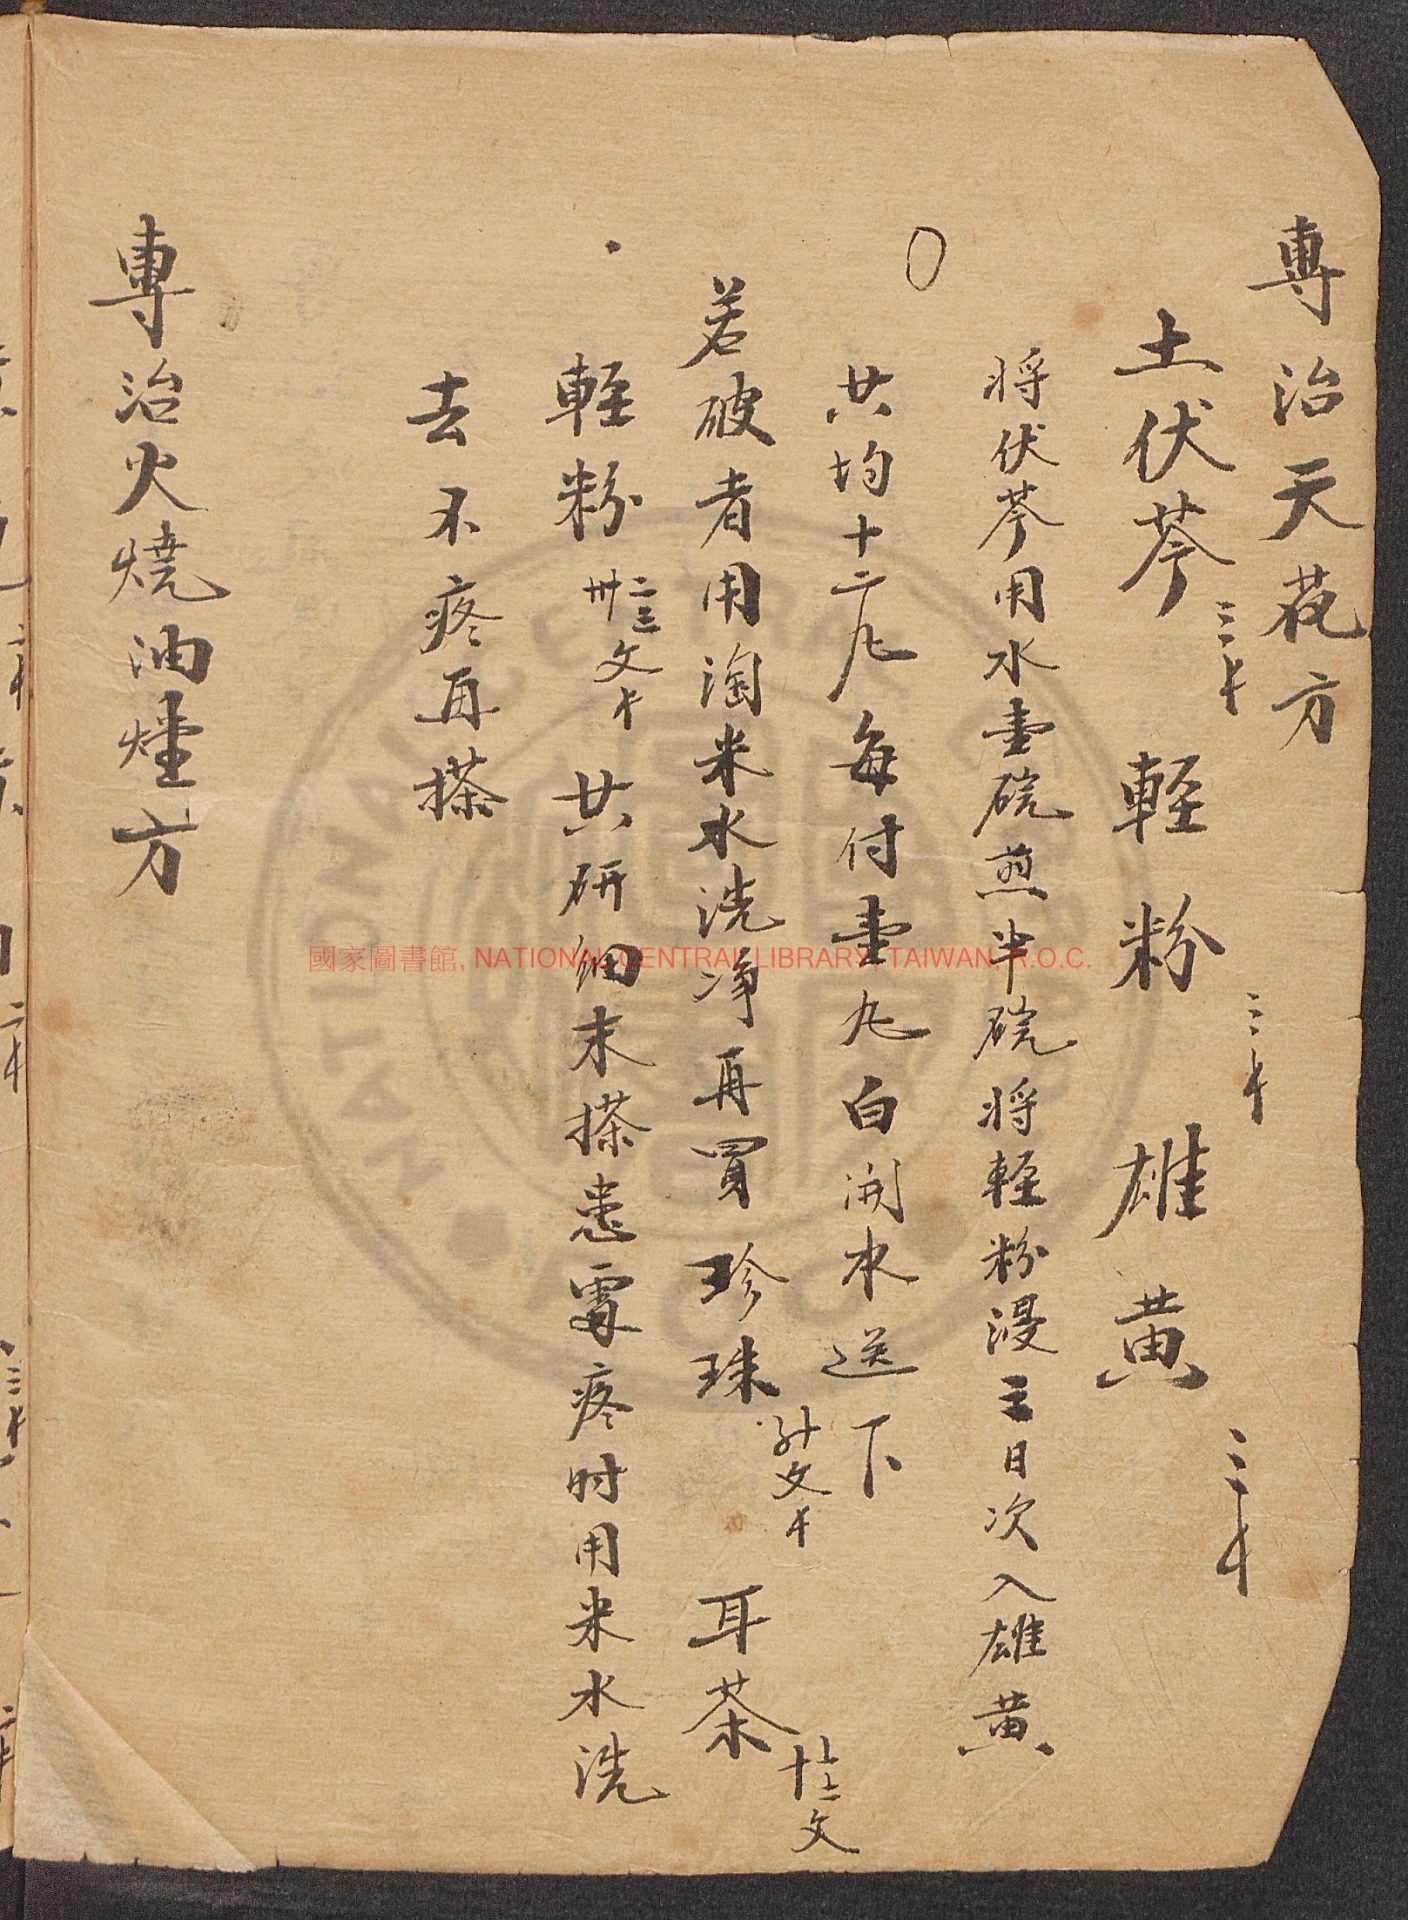 專治天花方
土伏苓 三才 輕粉 三才 雄黃 三才
將伏苓用水壹碗煎半碗將輕粉漫三日次入雄黃
共均十二九每付壹九白開水送下
若破者用淘米水洗净再買珍珠 文才 耳茶 文
輕粉 卅二三文才 共研細末搽患處疼时用米水洗
去不疼再搽
專治火燒油煙方
國家圖書館, NATIONAL CENTRAL LIBRARY, TAIWAN, R.O.C.